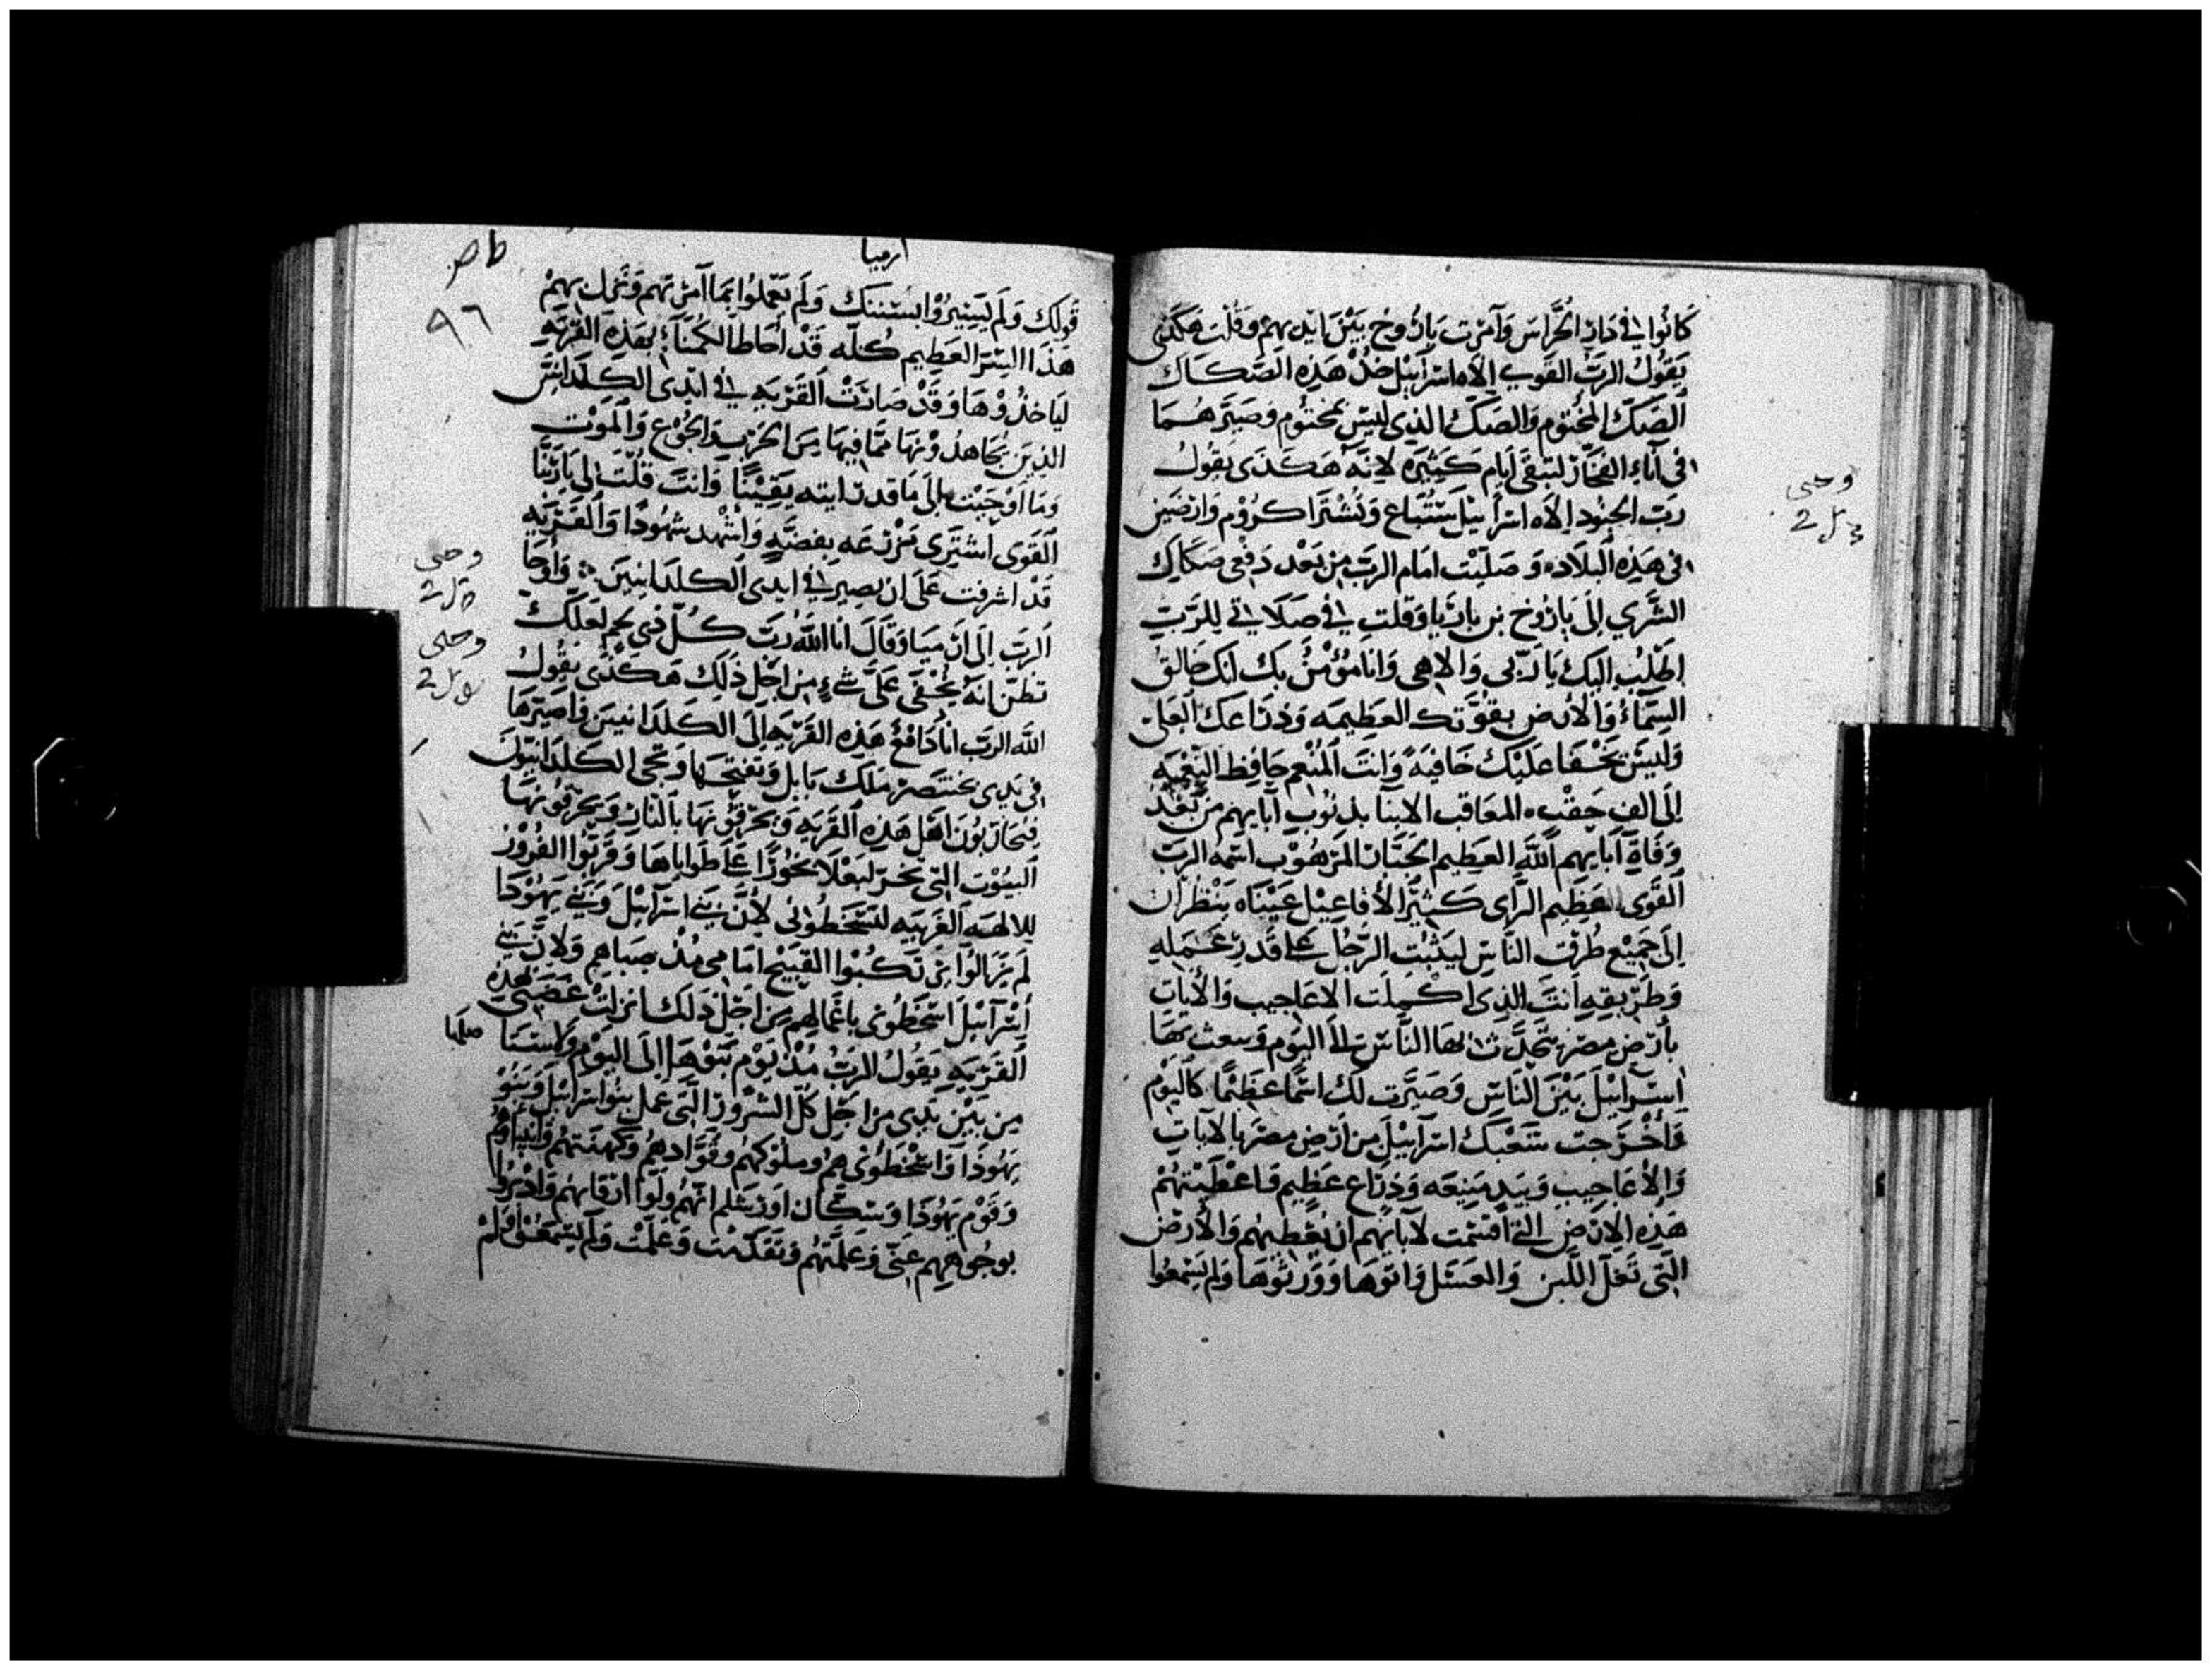 كَانُوا في دَارِ الحُرَّاسَ وَآمَرْت بَارُوخ بَيْن ايْديهم وقُلتَ هَكَذى
يَقُولُ الربّ القَوي إلاه اسرَآئيْل خُذْ هَذِه الصِّكَاك
الصَكّ المخْتوم وَالصَكّ الذِى ليسَ بمختُوم وَصَيّرهُمَا
في آناء الفخَّار لتبقى أيام كَثِيرَه لانَّه هَكذَى يقُولُ
ربّ الجنُود إلاه اسرآئيل سَتُبَاع وَتُشْترَا كرُوْم وَارضين
في هَذِه البلادِه وَصَليْت امَام الربّ من بَعْد دَفعى صكَاك
الشَري الى بَارُوخ بن بَاريَّا وَقلت في صَلاتي للرّبّ
اطلبُ اليكَ يَا رَبى وَالاهى وَانا مُؤْمنُ بك انك خَالق
السمَآءَ وَالارْض بقوَّتك العَظِيمَه وَذرَاعكَ العَلى
وَليسَ يَخْفا عَليْك خَافيَةً وَانتَ المُنْعم حَافِظ النِعْمه
إلى الف حِقْب المعَاقب الابنَا بذنُوبِ آبَايهم من بَعْد
وَفَاة آبَايهم اللّه العَظِيم الجَبَّار المَرْهُوْب اسْمُه الربّ
القَوى العَظِيم الرَاى كَثِيْر الأفَاعِيْل عَيْنَاه يَنْظُران
الى جَمِيْع طُرْق النَاس ليثيْبَ الرّجُل عَلى قَدرِ عَمَلِه
وَطَرْيقِه أنتَ الذِى اكْمِلت الاعَاجيب وَالأيَات
بأرْض مصْر يتحَدَّث بهَا النَّاسُ الى اليَوْم وَبعث بهَا
اسرَآئيْلَ بَيْنَ النَاسِ وَصَيَّرت لكَ اسْمًا عَظيْمًا كَاليَوْم
وَأخْرَجت شَعْبَكَ اسرَآئيْل من ارْض مصْرَ بالايَات
وَالأعَاجِيب وَبيَد مَنِيعَه وَذرَاع عَظِيم فَاعْطَيْتهُمْ
هَذِه الارْض التى اقْسَمت لأبَائهم ان تُعْطِيهُم وَالأرْض
التى تَغل اللَّبَن وَالعَسَل وَاتوهَا وَوَرِثُوهَا وَلم يَسْمعُوا
وحى
ارميا
٩٦
قَولك وَلَم يَسِيرُوْا بسُنَنَكَ وَلَم يَعْمَلوُا بمَا آمَرْتهم وَنَزل بهِمْ
هَذَا الشر العَظِيم كُلّه قَدْ احَاطَا الكُمنَآء بهَذِه القَرْيَه
ليَاخذُوْهَا وَقَدْ صَارَتْ القَرْيَه في ايْدى الكلدَانيين
الذِينَ يُجَاهدُوْنهَا مَّمَا فيهَا من الحَرْب وَالجُوْع وَالمَوْت
وَمَا اوْجَبْت الى مَا قد رَايته يَقِيْنًا وَانتَ قُلْتَ لى يَا ربّنَا
القَوى اشتَرى مَزْرَعَه بفضَّهٍ وَاشْهد شهُودًا وَالقَرْيَه
قَدْ اشرفت عَلَى ان تصِير في ايدى الكلدَانيينَ وَأوْحَا
الربّ إلى ارْميَا وَقَالَ انا اللّهُ رَبّ كُلّ ذي لحم لعَلكَ
تظنّ انهُ يُخْفَى عَلىَّ شَيءٍ من اجْل ذَلكَ هَكذَى يقُولُ
اللّه الربّ انا دَافعُ هَذِه القَرْيَه إلَى الكلدَانيينَ وَاصيّرهَا
في يَدى بختنصَر مَلك بَابل وَيفتحهَا وَيجى الكلدَانيُونَ
فيُحَاربُونَ اهْل هَذِه القَرْيَه وَيحْرقوُنهَا بالنَارِ وَيحْرقُونهَا
البيُوْت التى بخّر لبَعْلا بخُورًا عَلى طَوَاباهَا وَقَرّبُوا القُرُوْرَ
للالهَه الغَريبَه لتُسْخطُوني لأنّ بَنى اسرَآئيْل وَبَني يهُوْدَا
لم يَزالوُا يرْتكبُوا القَبيْح امَامى مُذْ صبَاهم وَلانَّ بَني
إسْرَآئيْل اسْخطُونى باعْمَالهم من اجْل ذَلك انزلتْ غضَبى بهذه
القَرْيَه يَقُولُ الربُّ مُذْ يَوْم بَنَوْهَا إلَى اليَوْم وَلاسَتها
من بَيْن يَدى من اجْل كُلّ الشرُوْر التى عمل بنُوا اسرَآئيْل وَبَنُوْ
يَهُوْذَا وَاسْخطُونى هُم وَملوُكهُم وَقُوَّادهِمُ وَكهنَتهُم وَانبيَاؤهُم
وَقَوْم يَهُوْدَا وَسُكّان اوْرَشلم انهُم ولوا ارْقَابهُم وَادْبَرُوا
بوُجُوْهِهِم عَنّى وَعَلّمتهُم وَتَقَدّمْتُ وَعَلّمْتُ وَلم يَسْمَعُوْا قولى
وحى
وحى